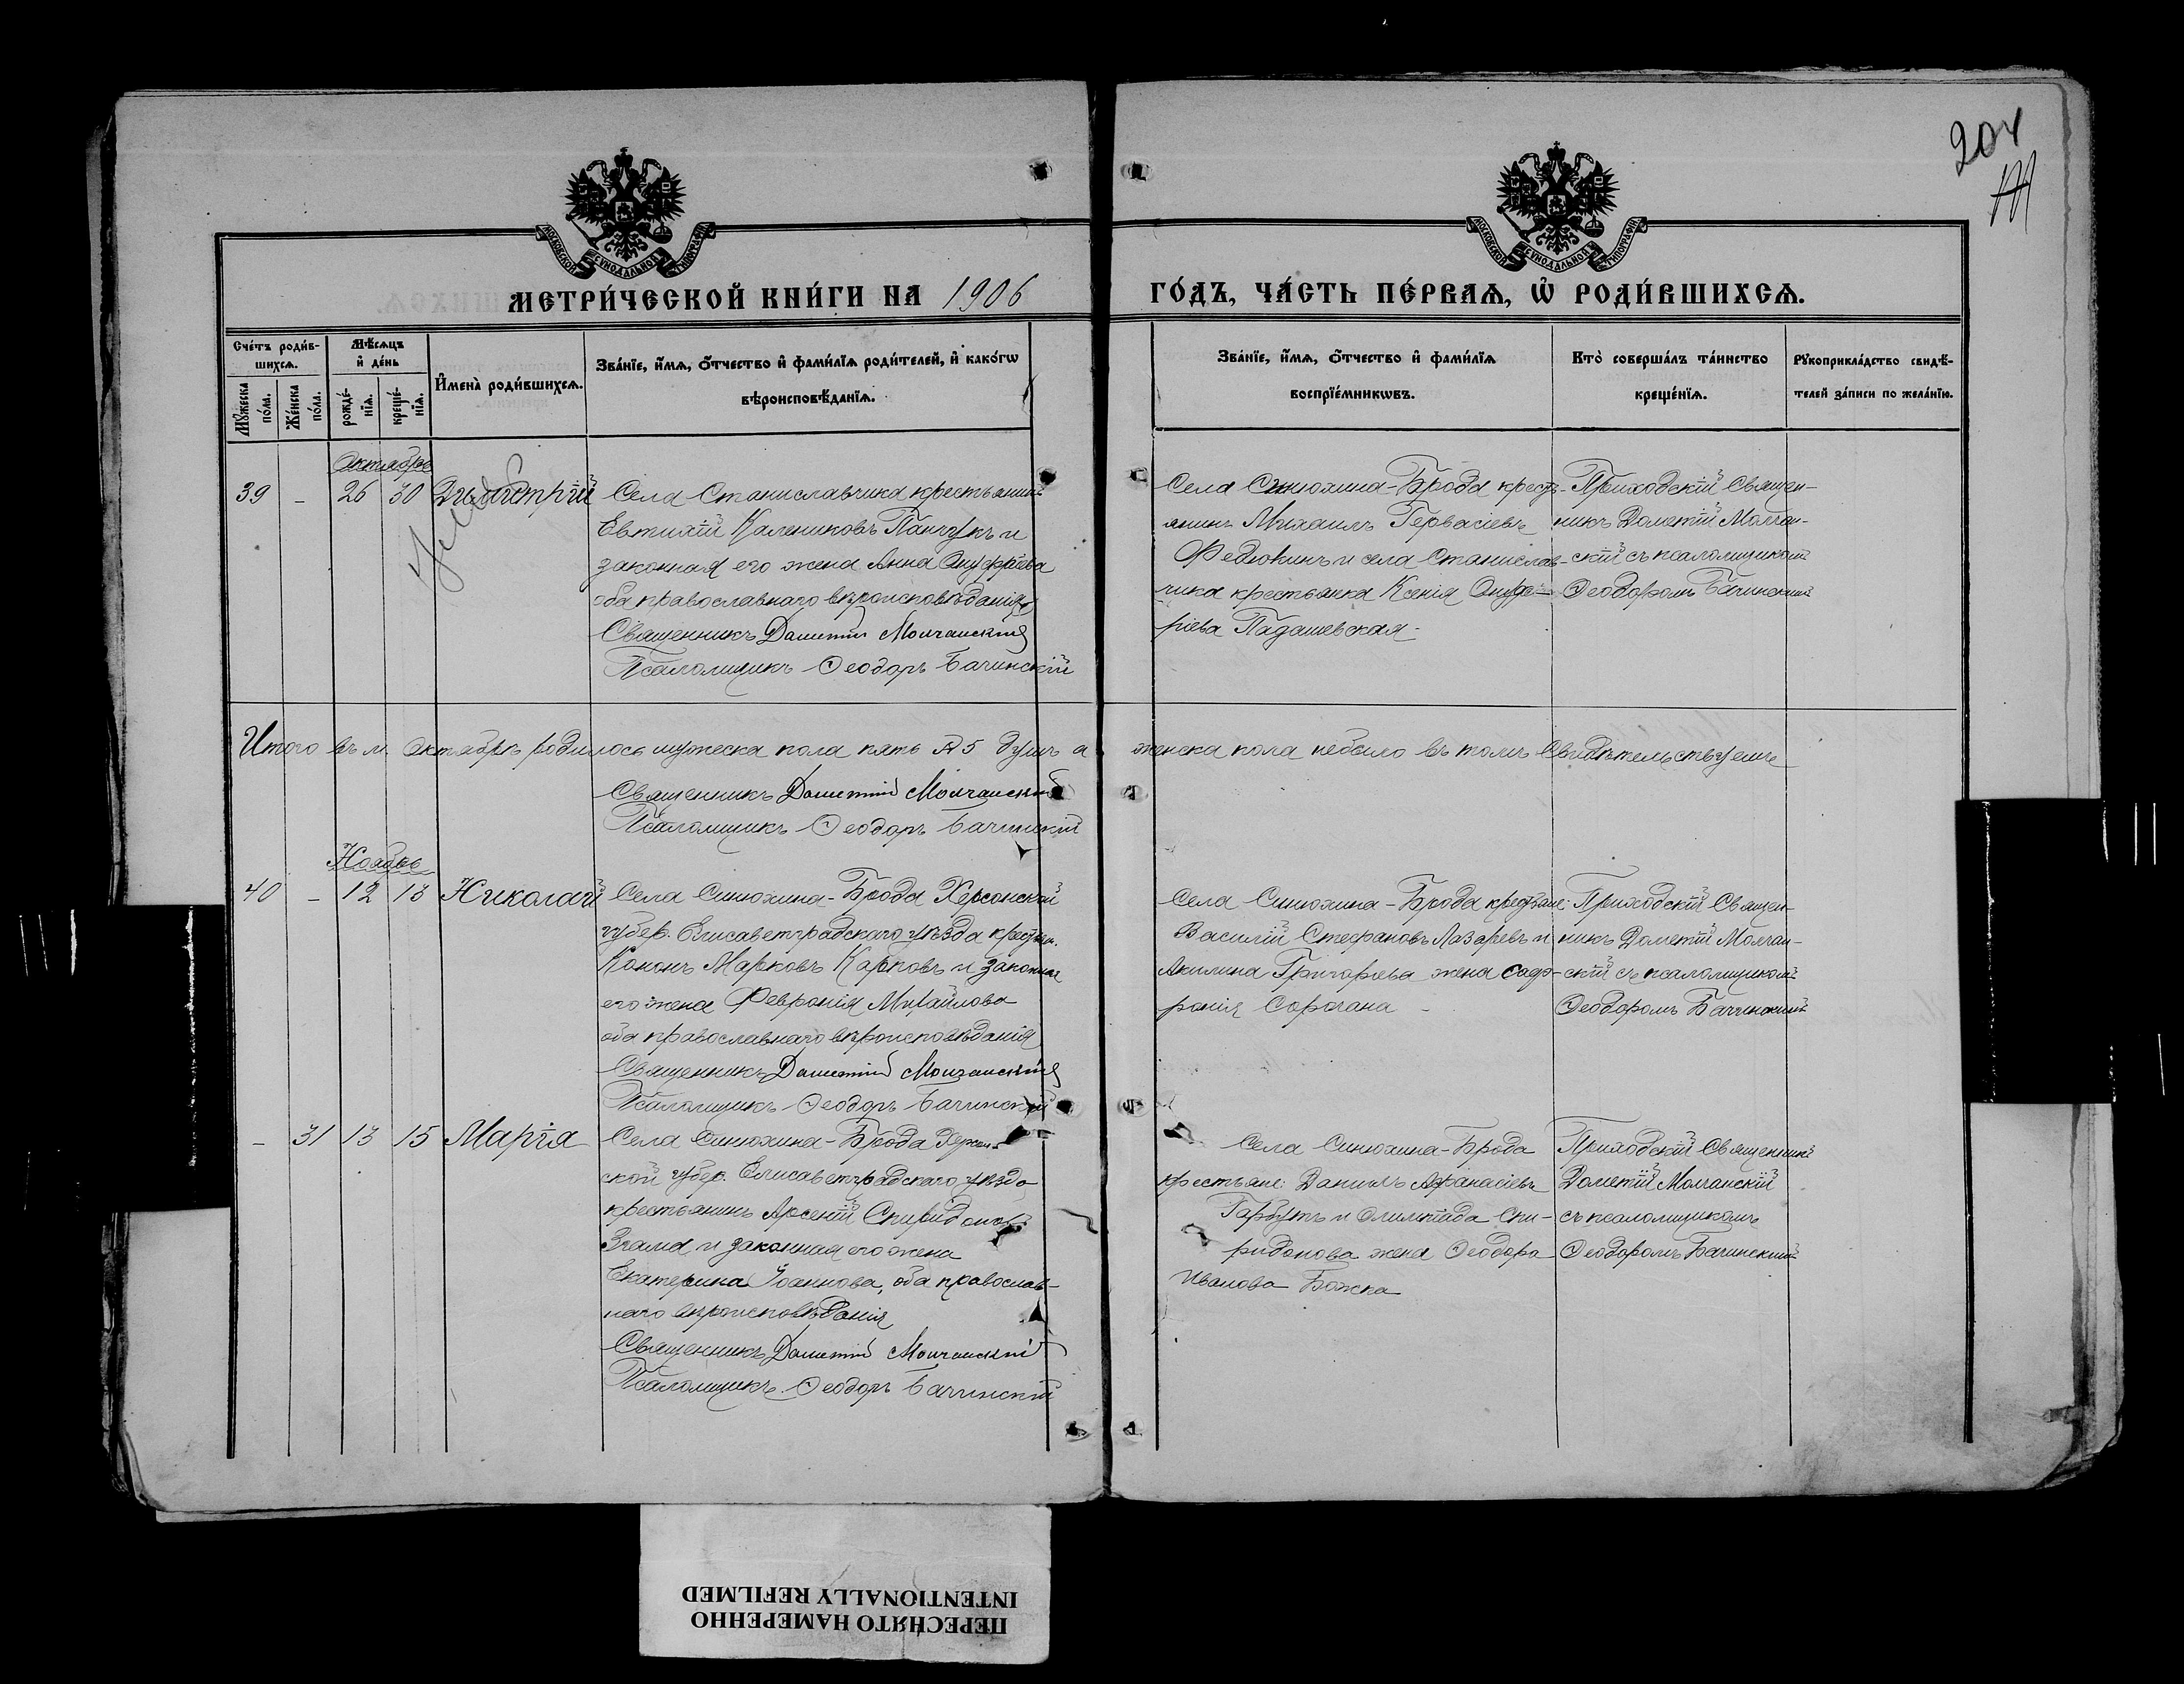 204
МОСКОВСКОЙ СѴНОДАЛЬНОЙ ТИПОГРАФІИ
МОСКОВСКОЙ СѴНОДАЛЬНОЙ ТИПОГРАФІИ
МЕТРИ́ЧЕСКОЙ КНИ́ГИ НА 1906
ГО́ДЪ, ЧА́СТЬ ПЕ́РВАѦ, Ѡ҆ РОДИ́ВШИХСѦ.
Сче́тъ роди́в-
шихсѧ.
Мꙋ́жеска по́ла.
Же́нска по́ла.
Мѣ́сѧцъ
и҆ де́нь
рожде́-
нїѧ.
креще́-
нїѧ.
И҆мена̀ роди́вшихсѧ.
Зва́нїе, и҆́мѧ, ѻ҆́тчество и҆ фами́лїѧ роди́телей, и҆ како́гѡ
вѣроисповѣ́данїѧ.
Зва́нїе, и҆́мѧ, ѻ҆́тчество и҆ фами́лїѧ
воспрїе́мникѡвъ.
Кто̀ соверша́лъ та́инство
креще́нїѧ.
Рꙋкоприкла́дство свидѣ́-
телей за́писи по жела́нїю.
Октябрь
39 - 26 30 Димитрій
Села Станиславчика крестьянинъ
Евтихій Калениковъ Панчукъ и
законная его жена Анна Онуфріева
оба православнаго вѣроисповѣданія
Священникъ Дометій Молчанскій
Псаломщикъ Ѳеодоръ Бачинскій
Села Синюхина-Брода кресть-
янинъ Михаилъ Гервасіевъ
Федюкинъ и села Станислав-
чика крестьянка Ксенія Онуф-
ріева Падашевская
Приходскій Священ-
никъ Дометій Молчан-
скій съ псаломщикомъ
Ѳеодоромъ Бачинскимъ
Итого въ м. Октябрѣ родилось мужеска пола пять 5 душъ а женска пола небыло въ томъ Свидѣтельствуемъ
Священникъ Дометій Молчанскій
Псаломщикъ Ѳеодоръ Бачинскій
Ноябрь
40 - 12 13 Николай
Села Синюхина-Брода Херсонской
губер. Елисаветградскаго уѣзда крестьян.
Кононъ Марковъ Карповъ и законная
его жена Февронія Михайлова
оба православнаго вѣроисповѣданія
Священникъ Дометій Молчанскій
Псаломщикъ Ѳеодоръ Бачинскій
Села Синюхина-Брода крестьяне:
Василій Стефановъ Лазаревъ и
Акилина Григорьева жена Соф-
ронія Сорочана
Приходскій Священ-
никъ Дометій Молчан-
скій съ псаломщикомъ
Ѳеодоромъ Бачинскимъ
- 31 13 15 Марія
Села Синюхина-Брода Херсон-
ской губер. Елисаветградскаго уѣзда
крестьянинъ Арсеній Спиридоновъ
и законная его жена
Екатерина Іоаннова, оба православ-
наго вѣроисповѣданія
Священникъ Дометій Молчанскій
Псаломщикъ Ѳеодоръ Бачинскій
Села Синюхина-Брода
крестьяне: Даніилъ Афанасіевъ
Гарбузъ и Олимпіада Спи-
ридонова жена Ѳеодора
Иванова Божка
Приходскій Священникъ
Дометій Молчанскій
съ псаломщикомъ
Ѳеодоромъ Бачинскимъ
ПЕРЕСНЯТО НАМЕРЕННО
INTENTIONALLY REFILMED